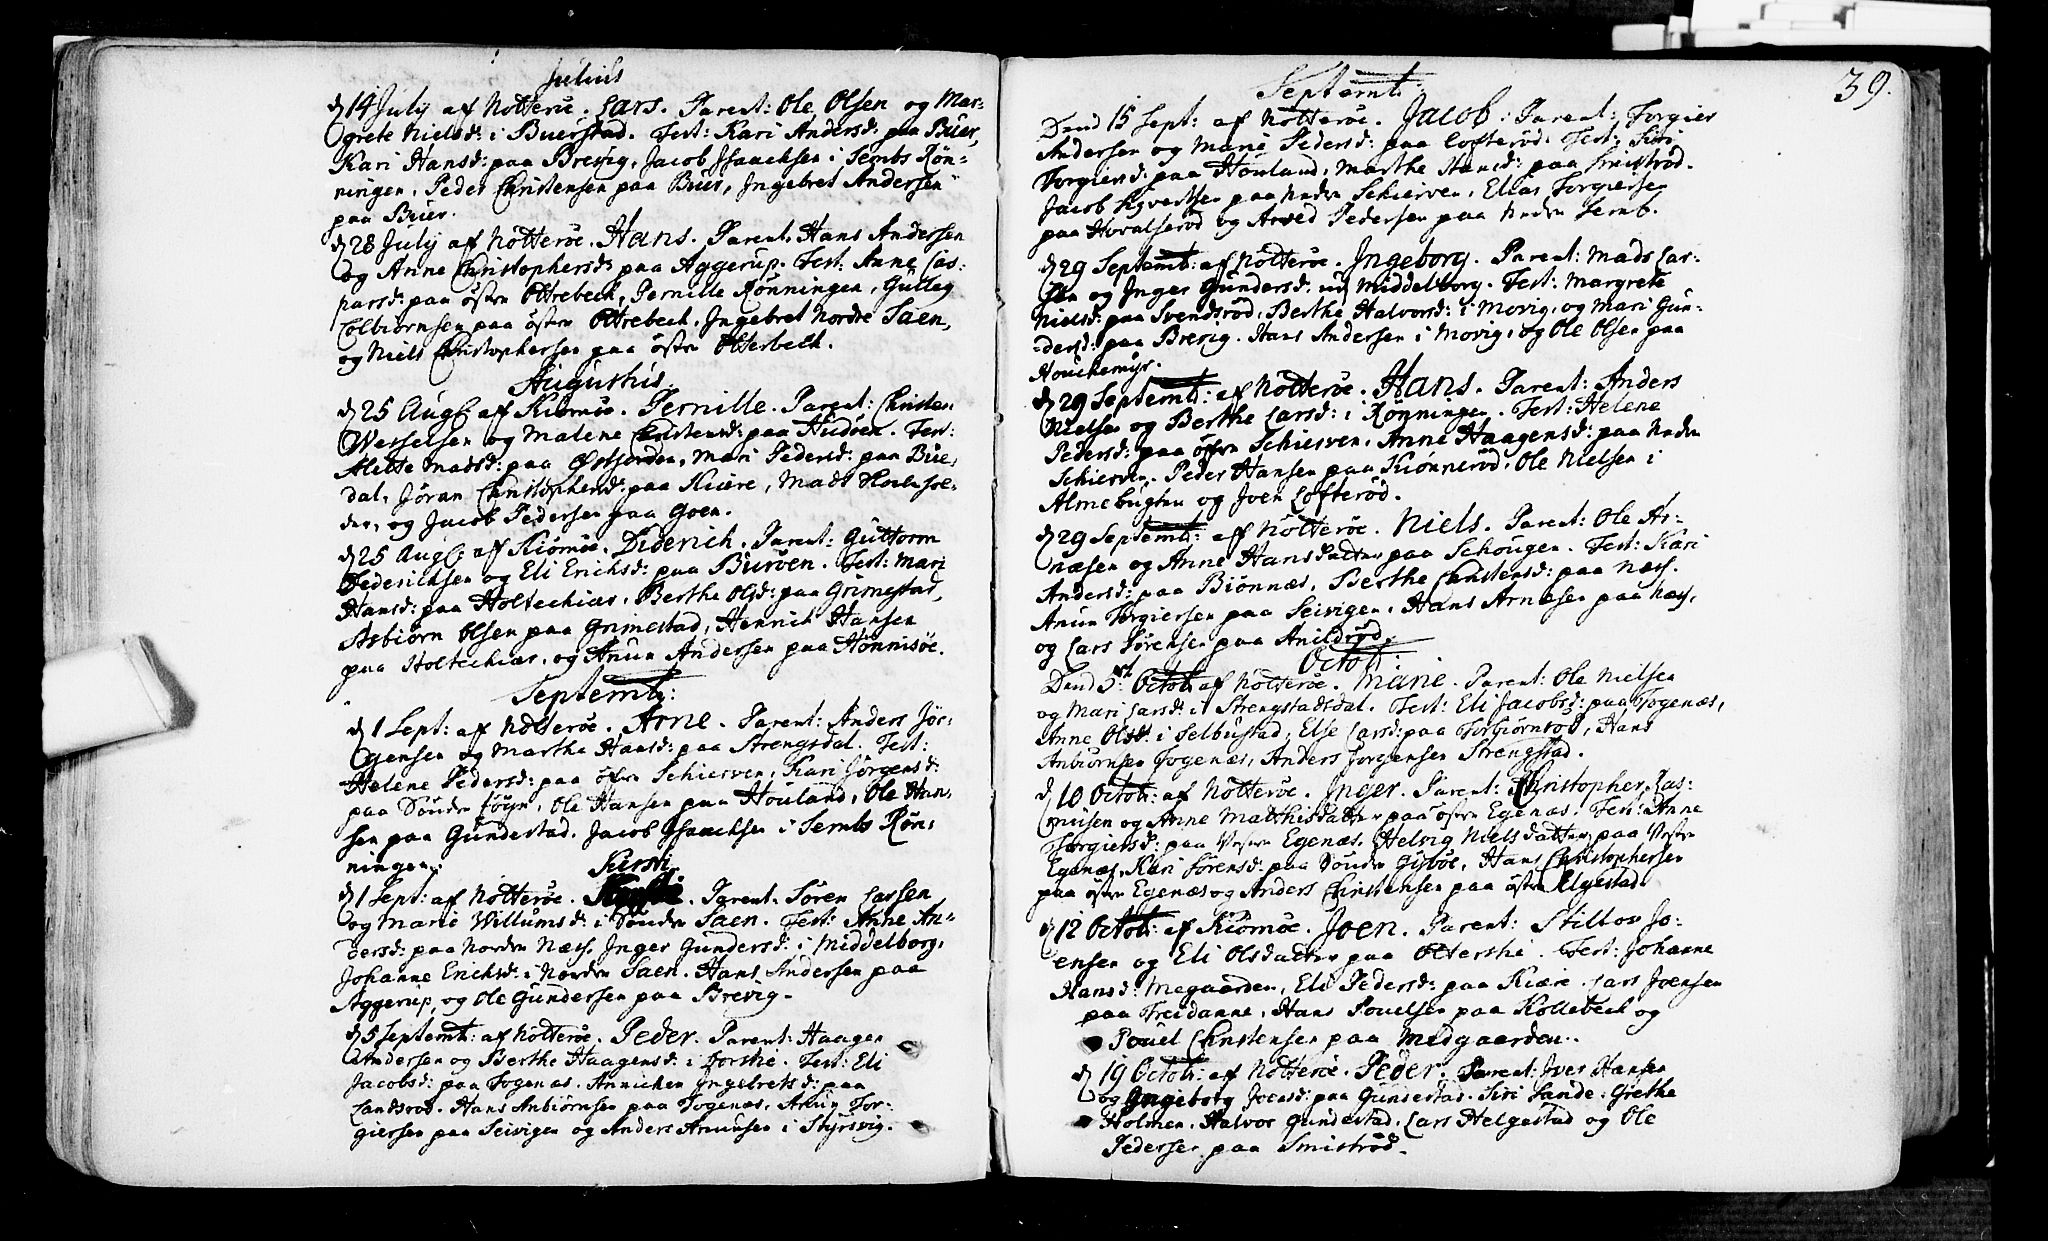 Julius
d 14 July af Nötteröe. Lars. Parent: Ole Olsen og Mar-
grete Nielsd: i Buerstad. Test: Kari Andersd: paa Buer,
Kari Hansd: paa Brevig, Jacob Isaachsen i Sembs Rön-
ningen, Peder Christensen paa Buer, Ingebret Andersen
paa Buer.
d 28 July af Nötteröe. Hans. Parent. Hans Andersen
og Anne Christophersd: paa Aggerup. Test: Anne Cas-
parsd: paa östre Oltrebech, Pernille Rönningen, Gulleg
Colbiörnsen paa östre Oltrebech. Ingebret Nordre Saen,
og Niels Christophersen paa östre Olterbech.
Augustus.
d 25 Aug: af Kiömöe. Pernille. Parent: Christen
Wesselsen og Malene Christensd: paa Hudöen. Test:
Mette Madsd: paa Östjorden, Mari Pedersd: paa Bue-
dal, Jöran Christophersd: paa Kiære, Mads
og Jacob Pedersen paa Goen.
d 25 Aug: af Kiömöe. Diderich. Parent: Guttorm
Federichsen og Eli Erichsd: paa Buröen. Test: Mari
Hansd: paa Holtechiær, Berthe Olsd: paa Grimestad,
Asbiörn Olsen paa Grimestad, Henrich Hansen
paa Holtechiær, og Anun Andersen paa Hönnisöe.
Septemb:
d 1 Sept: af Nötteröe. Arne. Parent: Anders Jör-
gensen og Marthe Hansd: paa Strengsdal. Test:
Helene Pedersd: paa öfre Schierven, Kari Jörgensd:
paa Söndre Föyn, Ole Hansen paa Houland, Ole Han-
sen paa Gundestad, Jacob Isaachsen i Sembs Rön-
ningen.
Kirsti.
d 1 Sept: af Nötteröe. Parent: Sören Larsen
og Marie Willumsd: i Söndre Saen. Test: Anne An-
dersd: paa Nordre Næss, Inger Gundersd: i Middelborg,
Johanne Erichsd: i Nordre Saen. Hans Andersen paa
Aggerup, og Ole Gundersen paa Brevig.
d 5 Septemb: af Nötteröe. Peder. Parent: Haagen
Andersen og Berthe Haagensd: i Torshe. Test: Eli
Jacobsd: paa Togenæs. Annichen Ingebretsd: paa
Landsröd. Hans Anbiörnsen paa Togenæs, Anun Tor-
giersen paa Seivigen og Anders Amunsen i Styrsvig.
39.
Septemb:
Dend 15 Sept: af Nötteröe. Jacob. Parent: Torgier
Andersen og Marie Pedersd: paa Lofteröd. Test: Siri
Torgiersd: paa Houland, Marthe Hansd: paa Smiströd.
Jacob Syvertsen paa Nedre Schierven, Elias Torgiersen
paa Hovalsröd og Arved Pedersen paa Nedre Semb.
d 29 Septemb: af Nötteröe. Ingeborg. Parent: Mads Lar-
sen og Inger Gundersd: ud Middelborg. Test: Margrete
Nielsd: paa Svendsröd, Berthe Halvorsd: i Movig, og Mari Gun-
dersd: paa Brevig. Hans Andersen i Movig, og Ole Olsen paa
Houchemyr.
d 29 Septemb: af Nötteröe. Hans. Parent: Anders
Nielsen og Berthe Larsd: i Rönningen. Test: Helene
Pedersd: paa öfre Schierven, Anne Haagensd: paa Nedre
Schierven. Peder Hansen paa Kiönneröd, Ole Nielsen i
Almebugten og Joen Lofteröd.
d 29 Septemb: af Nötteröe. Niels. Parent: Ole Ar-
nesen og Anne Hansdatter paa Schougen. Test: Kari
Andersd: paa Biönnæs, Berthe Christensd: paa Næss.
Anun Torgiersen paa Seivigen, Hans Arnesen paa Næss,
og Lars Sörensen paa Anildröd.
Octob:
Dend 5 Octob: af Nötteröe. Marie. Parent: Ole Nielsen
og Mari Larsd: i Strengstadsdal. Test: Eli Jacobsd: paa Togenæs,
Anne Olsd: i Selbustad, Else Larsd: paa Torbiörnröd, Hans
Anbiörnsen Togenæs, Anders Jorgensen Strengstad.
d 10 Octob: af Nötteröe. Inger. Parent: Christopher Ras-
musen og Anne Matthisdatter paa östre Egenæs. Test: Anne
Torgiersd: paa Vestre Egenæs, Helvig Nielsdatter paa Vestre
Egenæs, Kari Sörensd: paa Söndre Gipöe, Hans Christophersen
paa östre Egenæs og Anders Christensen paa östre Elgestad.
d 12 Octob: af Kiömöe. Joen. Parent: Stillov Jo-
ensen og Eli Olsdatter paa Oltershi. Test: Johanne
Hansd: Megaarden, Eli Pedersd: paa Kiære. Lars Joensen
paa Treidanne, Hans Povelsen paa Kollebech og
Pouel Christensen paa Medgaarden.
d 19 Octob: af Nötteröe. Peder. Parent: Iver Hansen
og Ingeborg Joensd: paa Gundestad. Siri Sande, Grethe
Holmen, Halvor Gundestad, Lars Helgestad og Ole
Pedersen paa Smiströd.